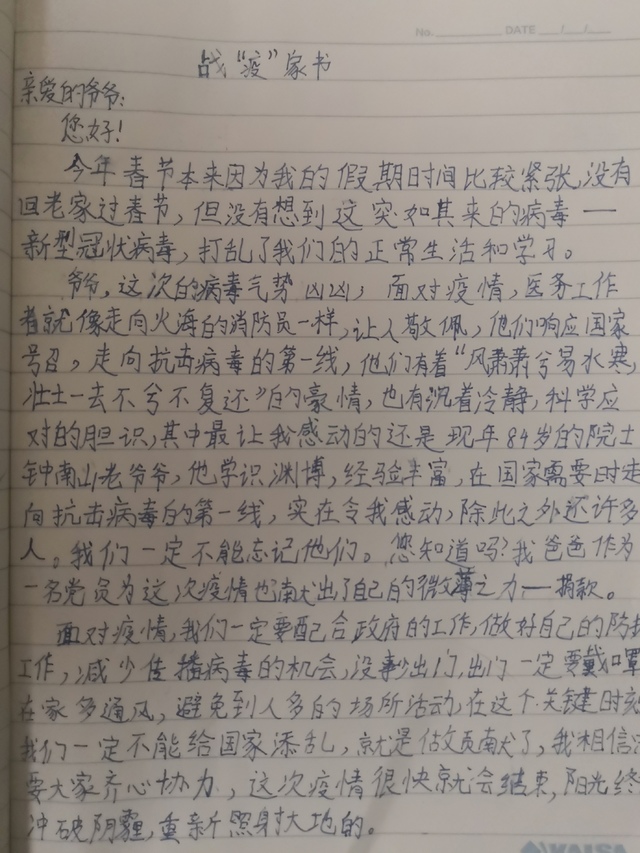 No. DATE / /
战“疫”家书
亲爱的爷爷:
您好!
今年春节本来因为我的假期时间比较紧张,没有
回老家过春节,但没有想到这突如其来的病毒一
新型冠状病毒,打乱了我们的正常生活和学习。
爷爷,这次的病毒气势凶凶,面对疫情,医务工作
者就像走向火海的消防员一样,让人敬佩,他们响应国家
号召,走向抗击病毒的第一线,他们有着“风萧萧兮易水寒,
壮士一去不兮不复还”的豪情,也有沉着冷静,科学应
对的胆识,其中最让我感动的还是现年84岁的院士
钟南山老爷爷,他学识渊博,经验丰富,在国家需要时走
向抗击病毒的第一线,实在令我感动,除此之外还许多
人。我们一定不能忘记他们。您知道吗?我爸爸作为
一名党员为这次疫情也献出了自己的微薄之力一捐款。
面对疫情,我们一定要配合政府的工作,做好自己的防护
工作,减少传播病毒的机会,没事少出门,出门一定要戴口罩
在家多通风,避免到人多的场所活动,在这个关键时刻
我们一定不能给国家添乱,就是做贡献了,我相信
要大家齐心协力,这次疫情很快就会结束,阳光终
冲破阴霾,重新照射大地的。
KAISA